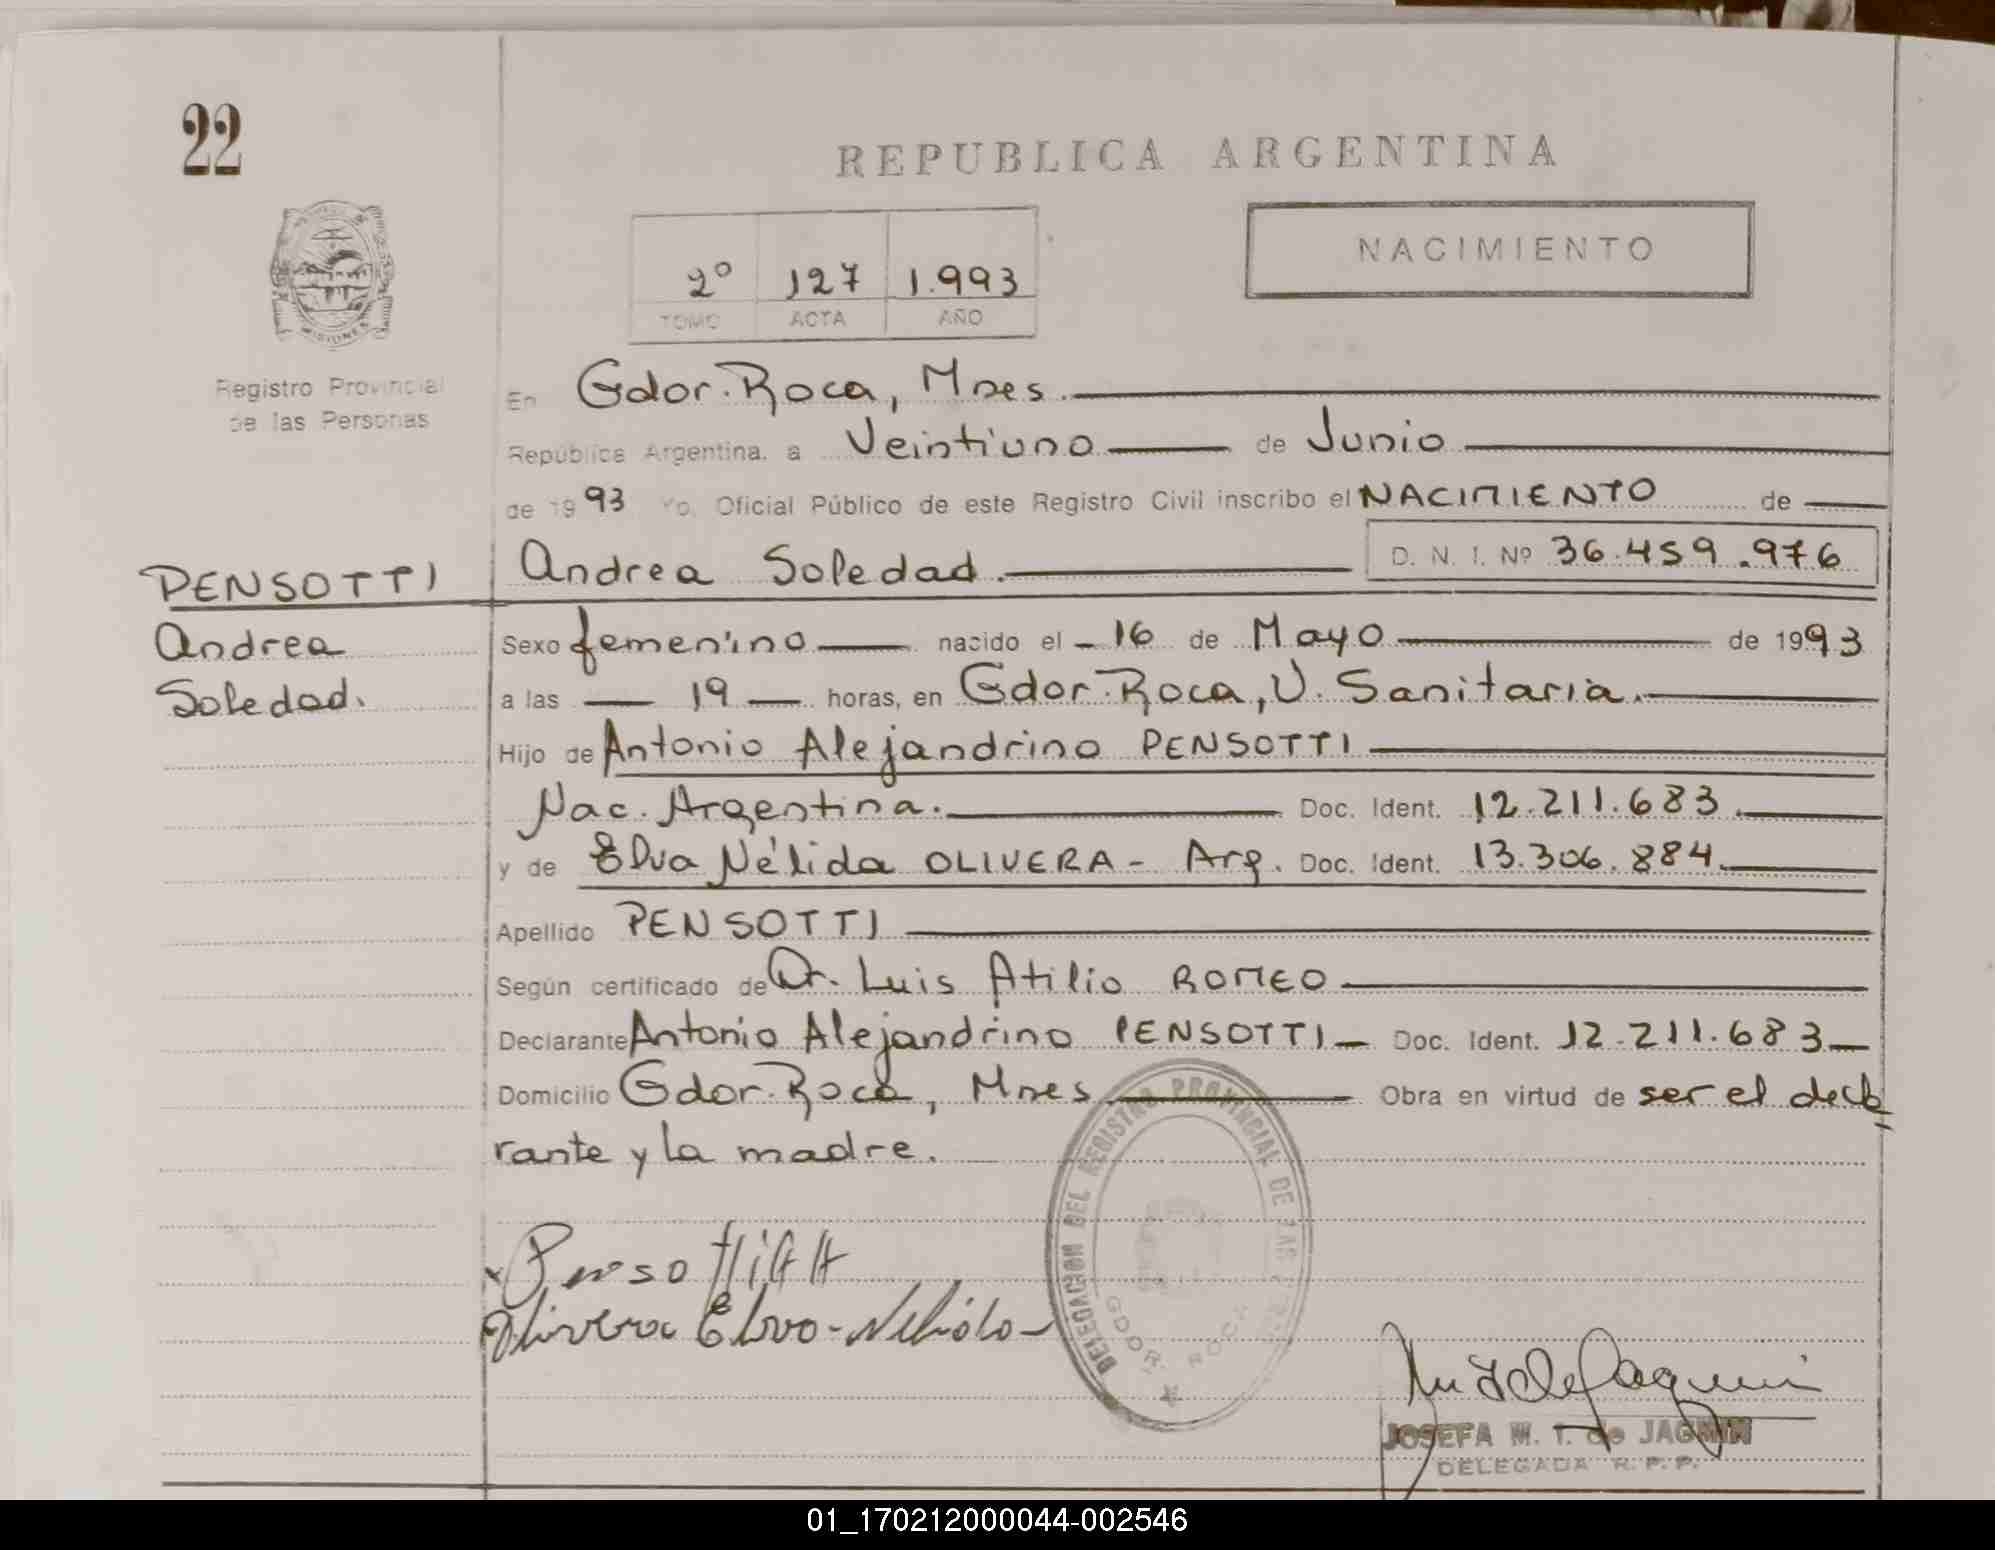 22
REPUBLICA ARGENTINA
NACIMIENTO
2º 127 1.993
TOMO ACTA AÑO
MISIONES
Registro Provincial
de las Personas
En Gdor. Roca, Mnes.
República Argentina, a Veintiuno de Junio
de 1993 Yo, Oficial Público de este Registro Civil inscribo el NACIMIENTO de
Andrea Soledad. D. N. I. Nº 36.459.976
PENSOTTI
Andrea
Soledad.
Sexo femenino nacido el - 16 de Mayo de 1993
a las — 19 — horas, en Gdor. Roca, U. Sanitaria.
Hijo de Antonio Alejandrino PENSOTTI
Nac. Argentina. Doc. Ident. 12.211.683.
y de Elva Nélida OLIVERA - Arg. Doc. Ident. 13.306.884.
Apellido PENSOTTI
Según certificado de Dr. Luis Atilio ROMEO
Declarante Antonio Alejandrino PENSOTTI Doc. Ident. 12.211.683
Domicilio Gdor. Roca, Mnes Obra en virtud de ser el decla
rante y la madre.
DELEGACION DEL REGISTRO PROVINCIAL DE LAS
GDOR. ROCA
Pensotti A A
Olivera Elva-Nelida
JOSEFA M. T. de JAGMIN
DELEGADA R. P. P.
01_170212000044-002546